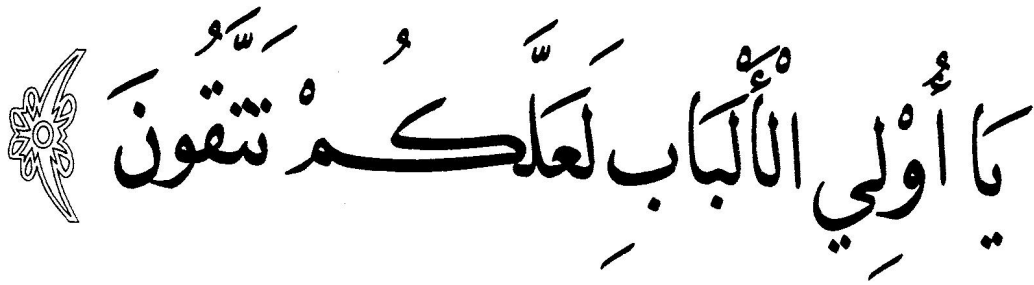 يَا أُوْلِي الْأَلْبَابِ لَعَلَّكُمْ تَتَّقُونَ ﴾